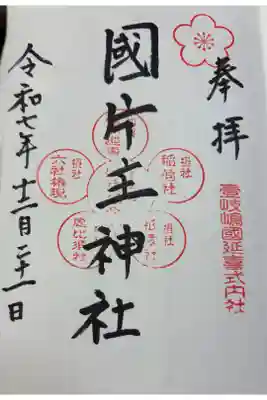 奉拝
壱岐嶋國延喜式内社
國片主神社
摂社
稲荷社
摂社
六社権現
摂社
恵比須社
摂社
令和七年十二月二十一日